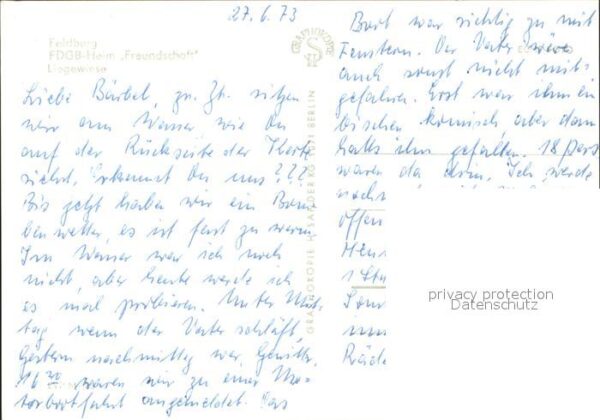 27.6.73
Feldberg
FDGB-Heim „Freundschaft"
Liegewiese
Liebe Bärbel, zr. Zt. sitzen
wir am Wasser wie Du
auf der Rückseite der Karte
siehst. Erkennst Du uns???
Bis jetzt haben wir ein Bom
benwetter, es ist fast zu warm
Im Wasser war ich noch
nicht, aber heute werde ich
es mal probieren. Unter Mit
tag wenn der Vater schläft.
Gestern nachmittag war Gewitt.
16 20 waren wir zu einer Mo-
torbootfahrt angemeldet. Das
GRAPHOKOPIE H. SANDER KG 1071 BERLIN
Boot war richtig zu mit
Fenstern. Der Vater wäre
auch sonst nicht mit-
gefahren. Erst war ihm ein
bischen komisch aber dann
hatts ihm gefallen. 18 Pers
waren da drin. Ich werde
noch
offen
1 Sta
Son
Räde
privacy protection
Datenschutz